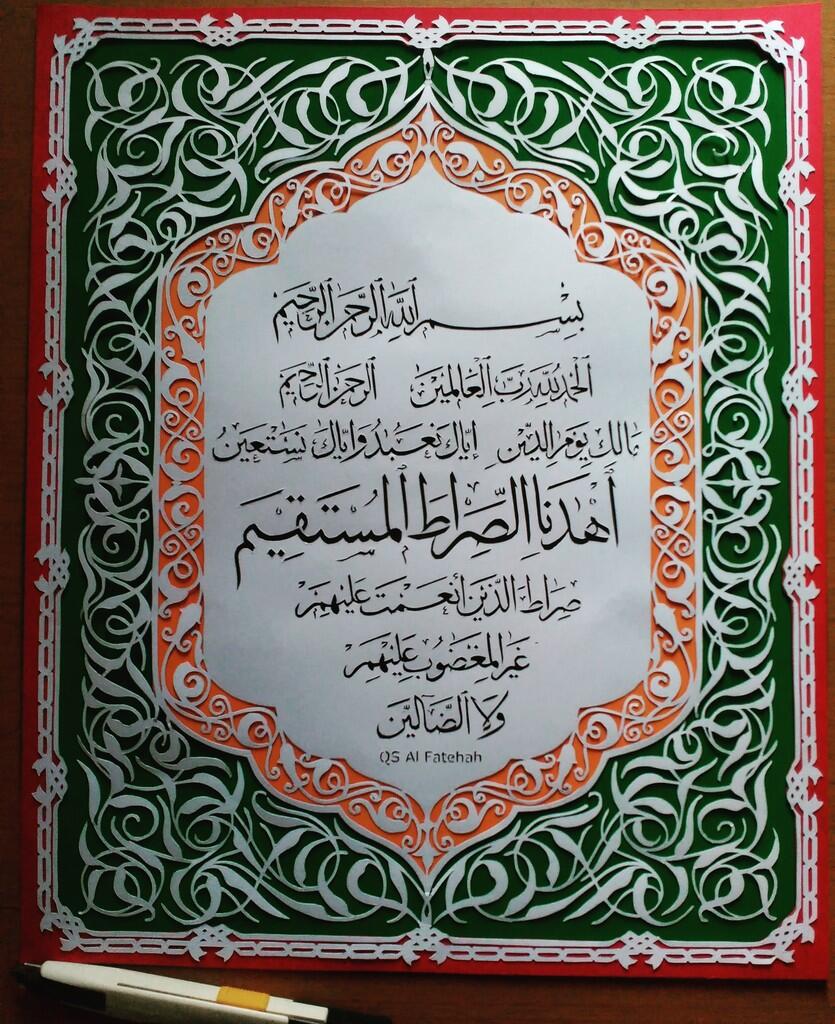 بسم الله الرحمن الرحيم
الحمد لله رب العالمين الرحمن الرحيم
مالك يوم الدين إياك نعبد وإياك نستعين
اهدنا الصراط المستقيم
صراط الذين أنعمت عليهم
غير المغضوب عليهم
ولا الضالين
QS Al Fatehah